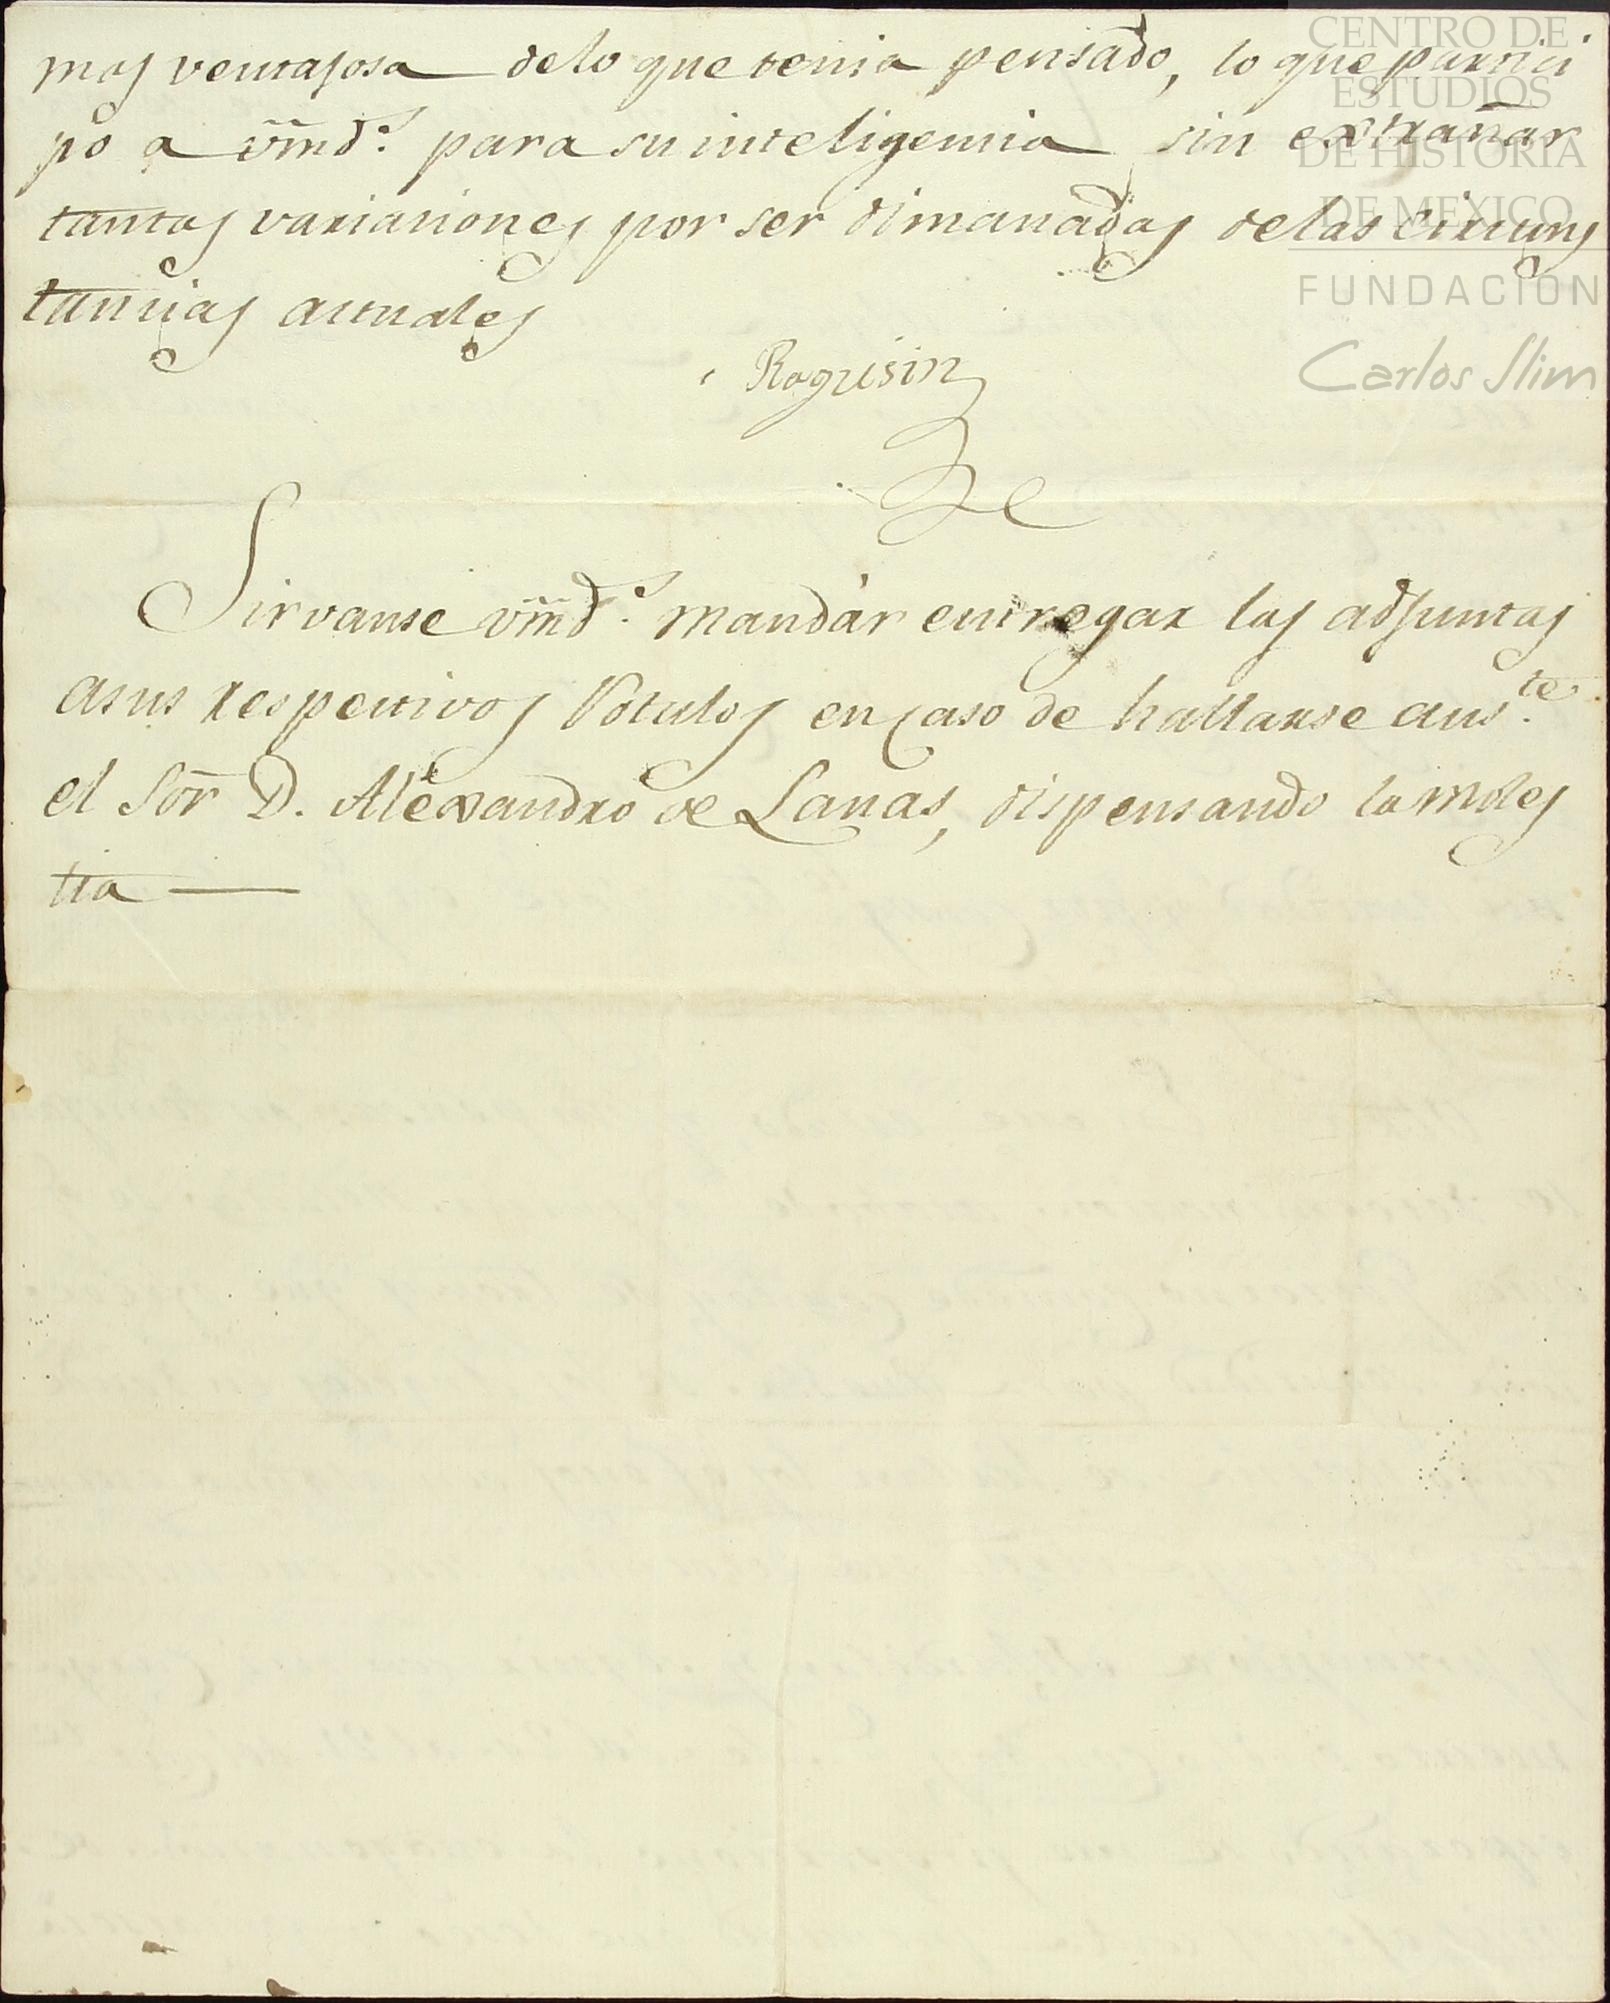 CENTRO DE
ESTUDIOS
DE HISTORIA
DE MEXICO
FUNDACIÓN
Carlos Slim
mas ventajosa delo que tenia pensado, lo que partici
po a vm̃d.s para su inteligencia sin extrañar
tantas variaciones por ser dimanadas delas circuns
tancias actuales
Ragusin
Sirvanse vm̃d.s mandár entregar las adjuntas
asus respectivos Rotulos en caso de hallarse aus.te
el Sõr D. Alexandro de Lanas, dispensando la moles
tia